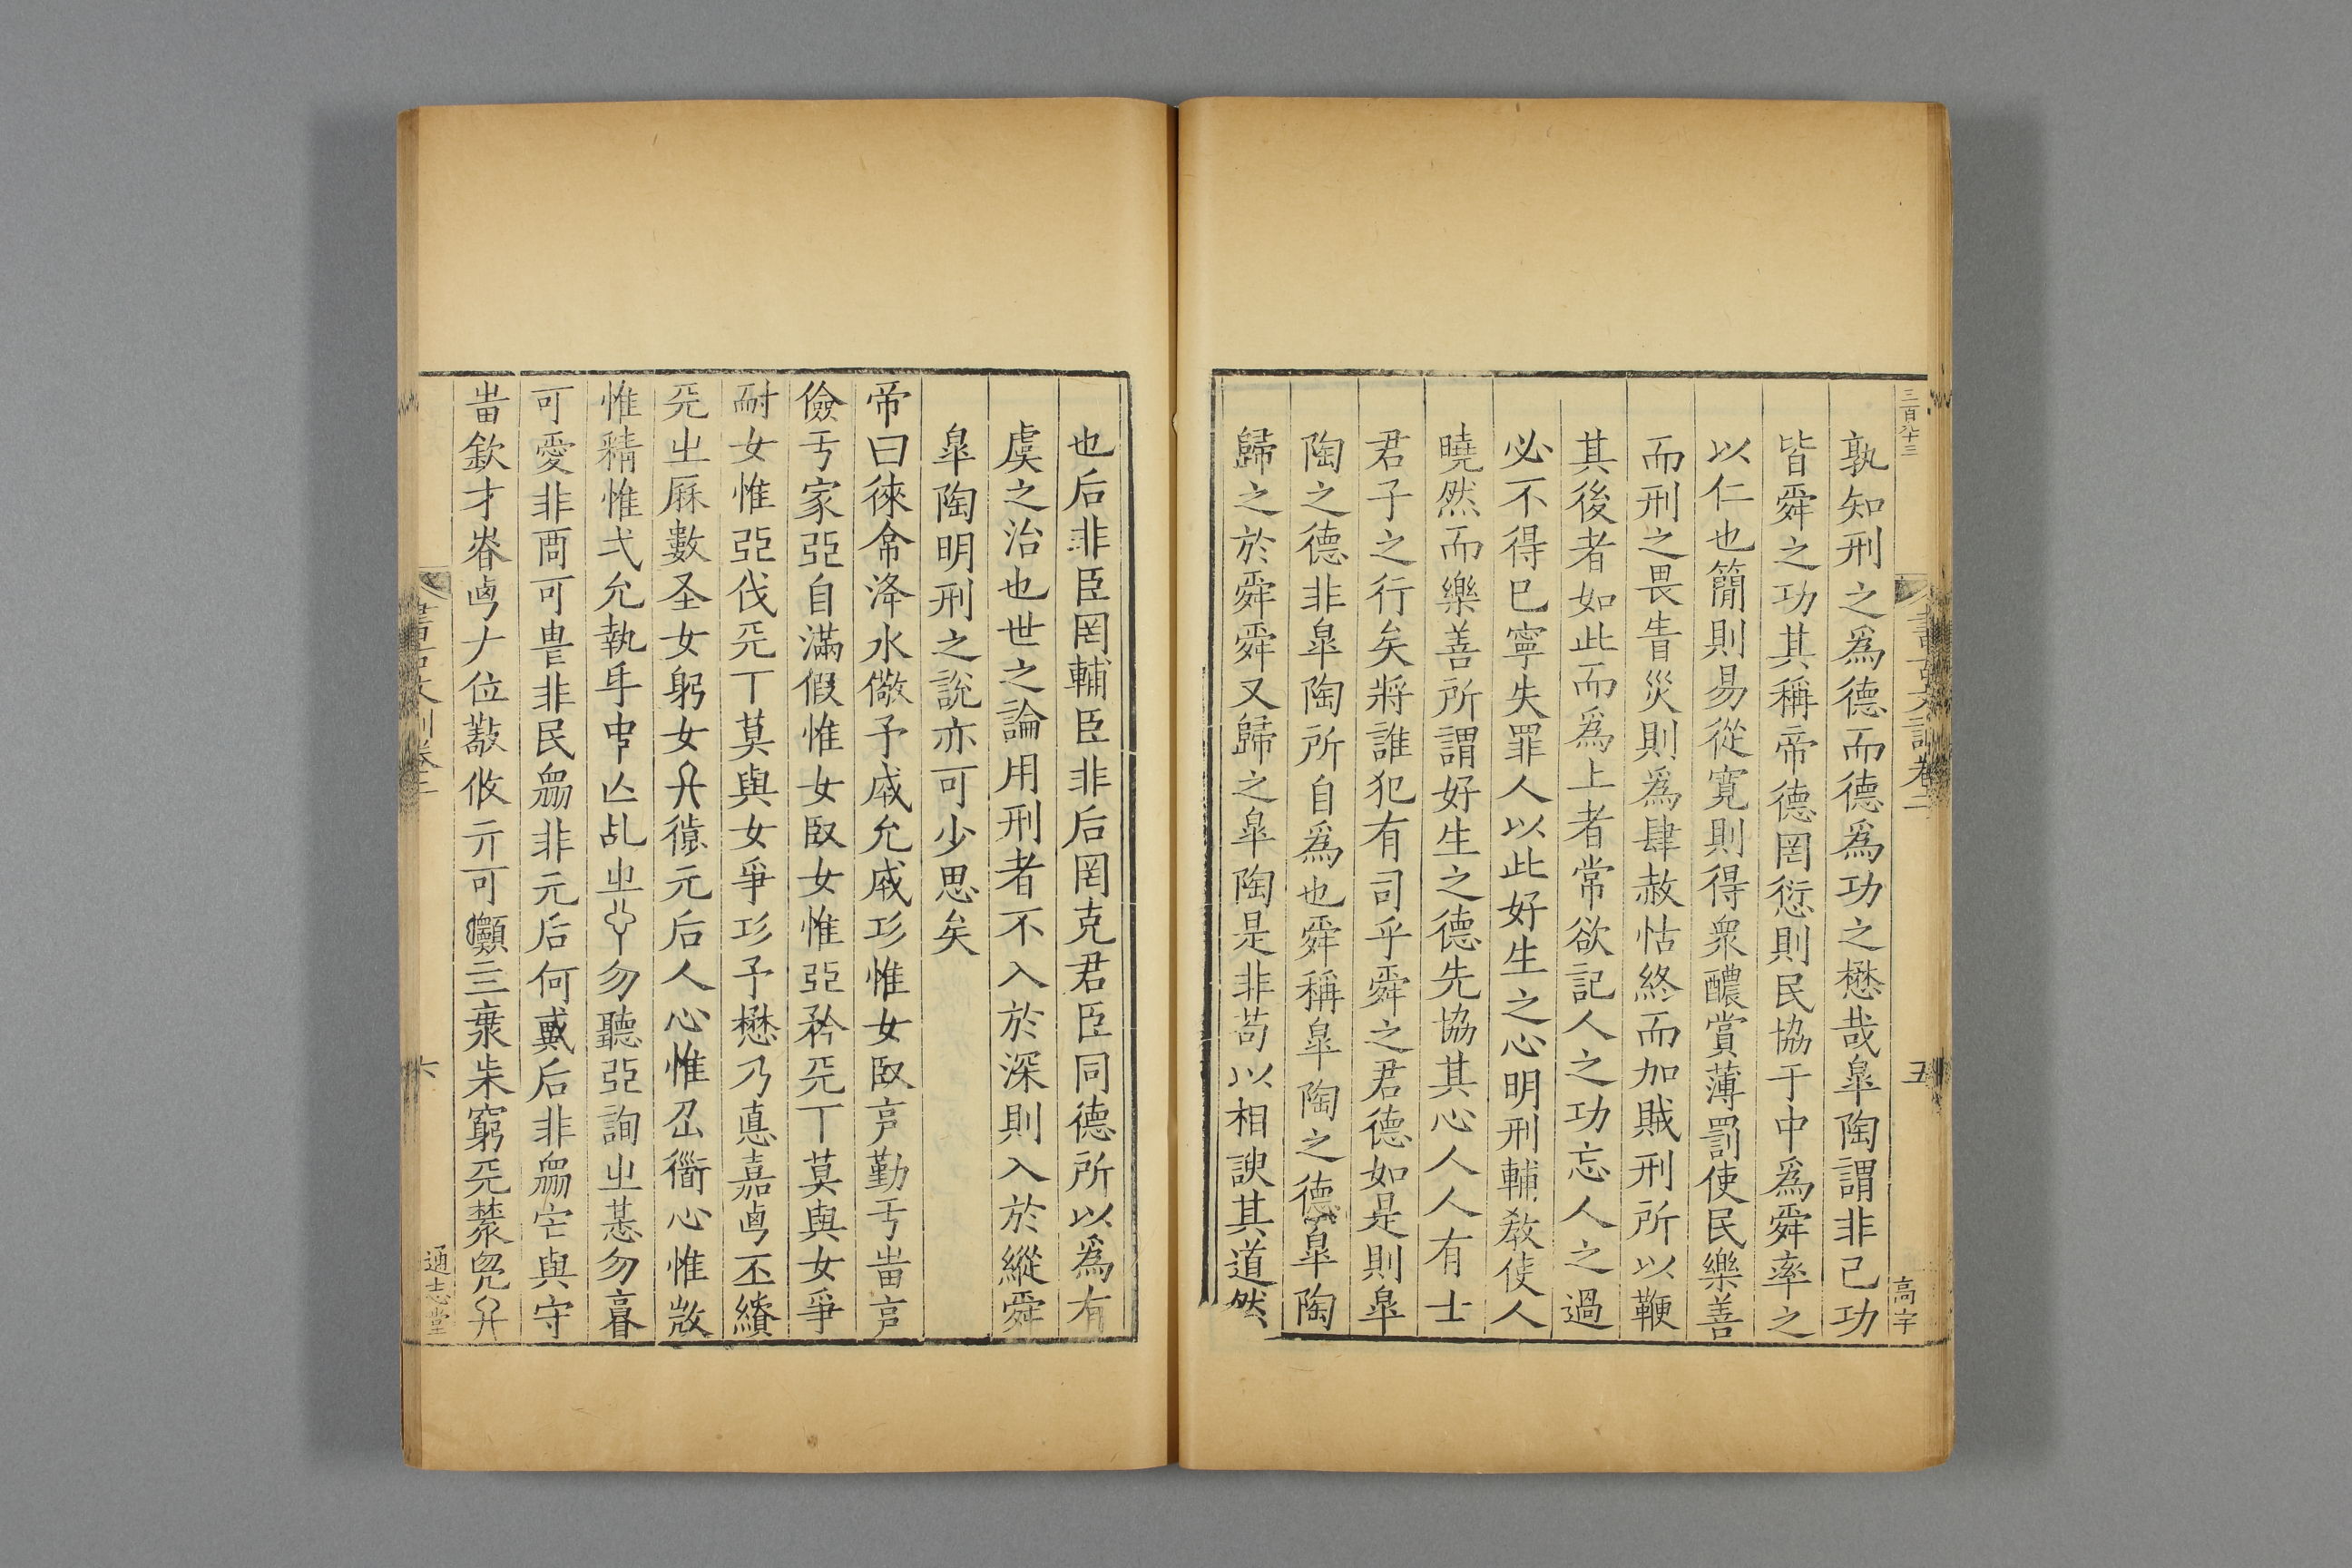 三百八十三
書古文訓卷二
五
高宇
孰知刑之爲德而德爲功之懋哉臯陶謂非己功
皆舜之功其稱帝德罔愆則民協于中爲舜率之
以仁也簡則易從寬則得衆醲賞薄罰使民樂善
而刑之畏眚災則爲肆赦怙終而加賊刑所以鞭
其後者如此而爲上者常欲記人之功忘人之過
必不得已寧失罪人以此好生之心明刑輔敎使人
曉然而樂善所謂好生之德先協其心人人有士
君子之行矣將誰犯有司乎舜之君德如是則臯
陶之德非臯陶所自爲也舜稱臯陶之德臯陶
歸之於舜舜又歸之臯陶是非苟以相諛其道然
也后非臣罔輔臣非后罔克君臣同德所以爲有
虞之治也世之論用刑者不入於深則入於縱舜
臯陶明刑之說亦可少思矣
帝曰徠侖洚水儆予成允成巧惟女臤亯勤亏
儉亏家亞自滿假惟女臤女惟亞矜兂丅莫與女爭
耐女惟亞伐兂丅莫與女爭巧予懋乃悳嘉卥丕績
兂㞢厤數圣女躬女𠔏徳元后人心惟危衟心惟敚
惟精惟弌允執氒中亾乩㞢勿聽亞詢㞢惎勿𦤘
可愛非商可畏非民衆非元后何戴后非衆它與守
欽才眘卥𠂇位敬攸亓可三穷兂
六
通志堂